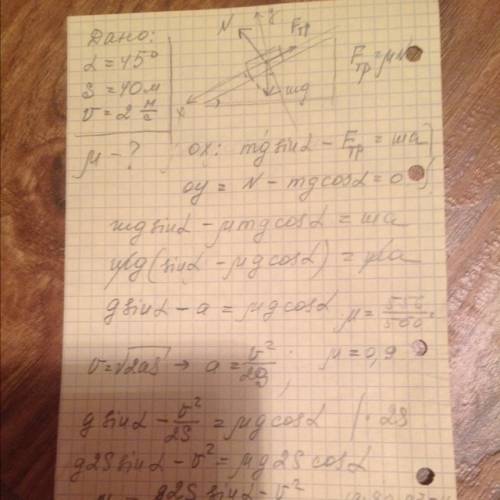 Дано:
α = 45°
S = 40 м
v = 2 м/с
μ - ?
N
y
Fтр
mg
x
Fтр = μN
ox: mg sinα - Fтр = ma
oy = N - mg cosα = 0
mg sinα - μmg cosα = ma
mg(sinα - μg cosα) = ma
g sinα - a = μg cosα
μ = 556/560 =
v = √2aS → a = v²/2S ;
μ = 0,9
g sinα - v²/2S = μg cosα | · 2S
g2S sinα - v² = μg2S cosα
g2S sinα - v²